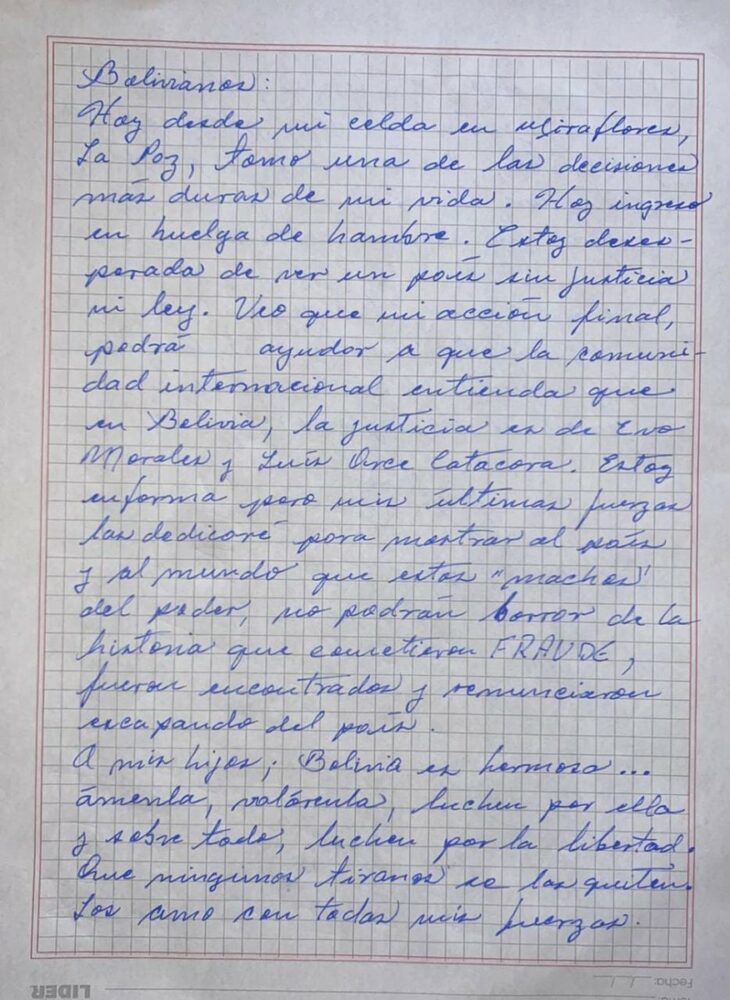 Bolivianos:
Hoy desde mi celda en Miraflores,
La Paz, tomo una de las decisiones
más duras de mi vida. Hoy ingreso
en huelga de hambre. Estoy deses-
perada de ver un país sin justicia
ni ley. Veo que mi acción final,
podrá ayudar a que la comuni-
dad internacional entienda que
en Bolivia, la justicia es de Evo
Morales y Luis Arce Catacora. Estoy
enferma pero mis últimas fuerzas
las dedicaré para mostrar al país
y al mundo que estos "machos"
del poder, no podrán borrar de la
historia que cometieron FRAUDE,
fueron encontrados y renunciaron
escapando del país.
A mis hijos; Bolivia es hermosa...
ámenla, valórenla, luchen por ella
y sobre todo, luchen por la libertad.
Que ningunos tiranos se las quiten.
Los amo con todas mis fuerzas.
LIDER
Fecha: / /